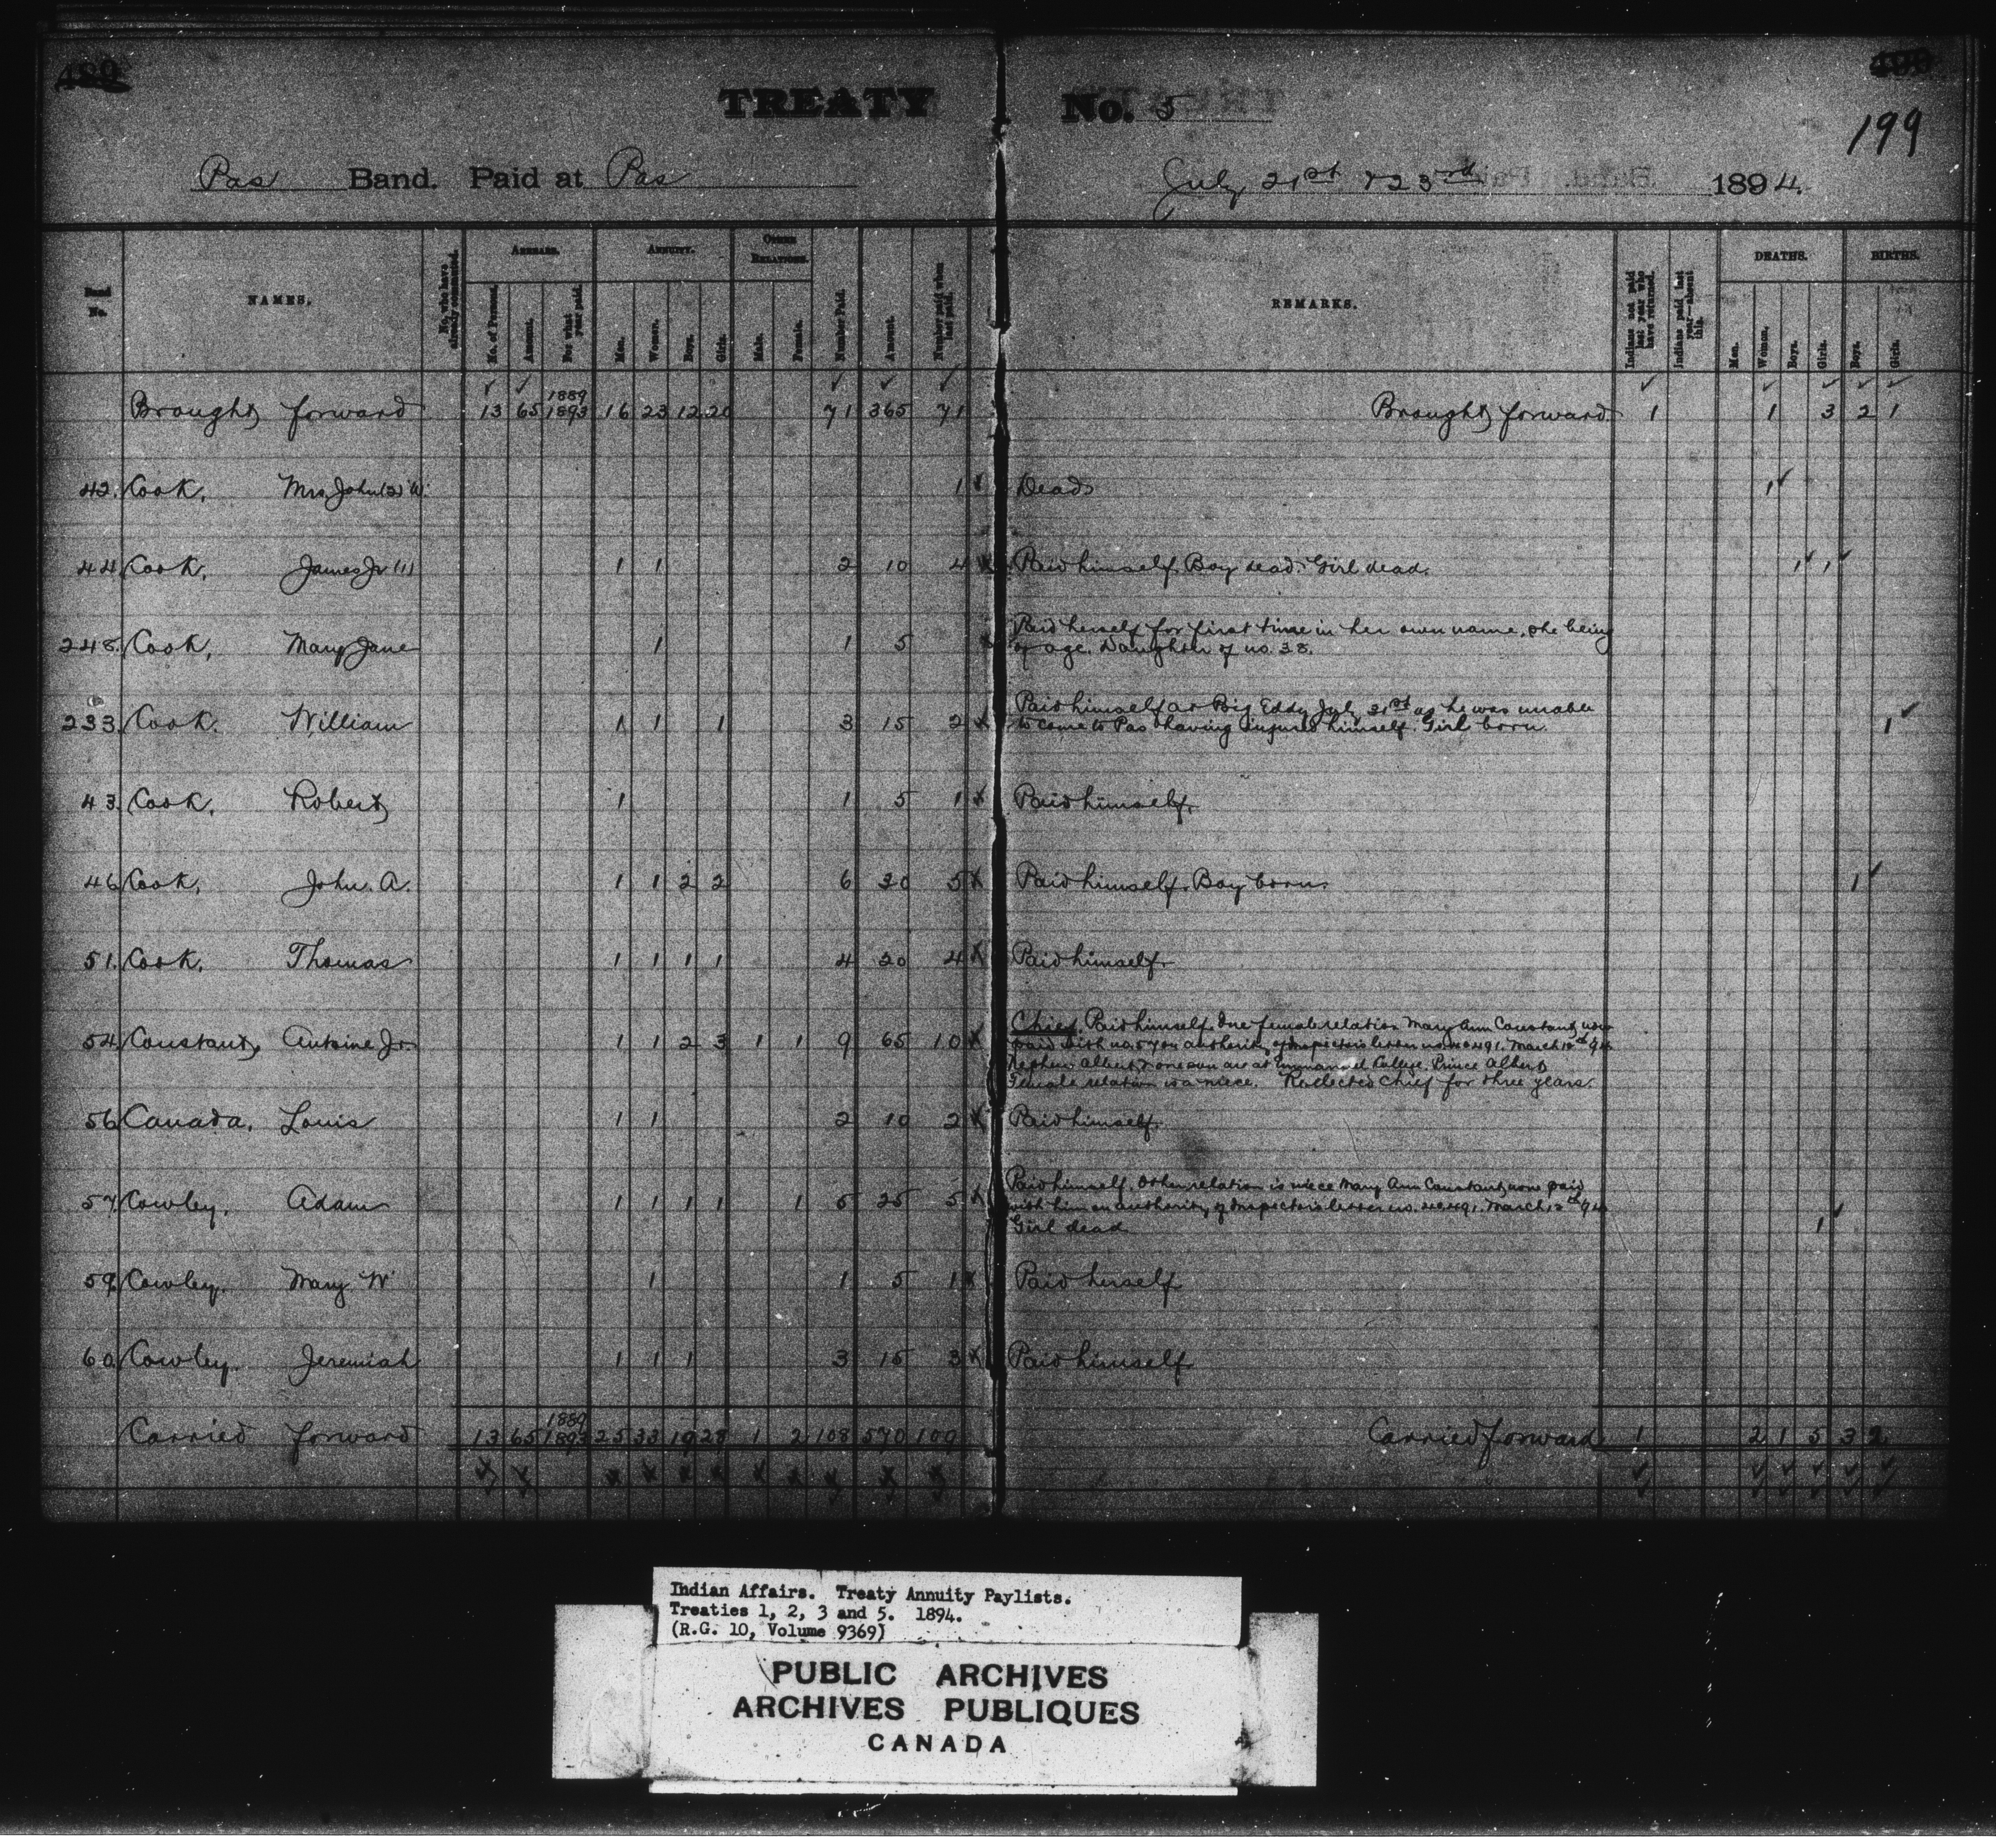 199
TREATY No. 5
Pas Band. Paid at Pas July 21st & 23rd 1894.
Band No. NAMES. No. who have already commuted. ARREARS. ANNUITY. OTHER RELATIONS. Number Paid. Amount. Number paid when last paid. REMARKS. Indians not paid last year who have returned. Indians paid last year—absent this. DEATHS. BIRTHS.
No. of Persons. Amount. For what year paid. Men. Women. Boys. Girls. Male. Female. Men. Women. Boys. Girls. Boys. Girls.
Brought forward 13 65 1889 1893 16 23 12 20 71 365 71 Brought forward 1 1 3 2 1
42. Cook, Mrs. John (2) W. 1 Dead 1
44 Cook, James Jr (1) 1 1 2 10 4 Paid himself. Boy dead. Girl dead. 1 1
248. Cook, Mary Jane 1 1 5 Paid herself for first time in her own name, she being
of age. Daughter of no. 38.
233 Cook. William 1 1 1 3 15 2 Paid himself at Big Eddy July 21st as he was unable
to come to Pas having injured himself. Girl born. 1
43. Cook, Robert 1 1 5 1 Paid himself.
46 Cook, John. A. 1 1 2 2 6 30 5 Paid himself. Boy born. 1
51. Cook, Thomas 1 1 1 1 4 20 4 Paid himself.
54. Constant, Antoine Jr. 1 1 2 3 1 1 9 65 10 Chief. Paid himself. One female relation Mary Ann Constant now
paid with no. 57 on authority of Inspector's letter no. March 12th 94
Nephew Albert & one son are at Emmanuel College, Prince Albert
Female relation is a niece. Reelected Chief for three years.
56 Canada, Louis 1 1 2 10 2 Paid himself.
57. Cowley, Adam 1 1 1 1 1 5 25 5 Paid himself. Other relation is niece Mary Ann Constant, now paid
with him on authority of Inspector's letter no. March 12th 94
Girl dead 1
59. Cowley. Mary W. 1 1 5 1 Paid herself
60. Cowley. Jeremiah 1 1 1 3 15 3 Paid himself
Carried forward 13 65 1889 1893 25 33 19 28 1 2 108 570 109 Carried forward 1 2 1 5 3 2
Indian Affairs. Treaty Annuity Paylists.
Treaties 1, 2, 3 and 5. 1894.
(R.G. 10, Volume 9369)
PUBLIC ARCHIVES
ARCHIVES PUBLIQUES
CANADA